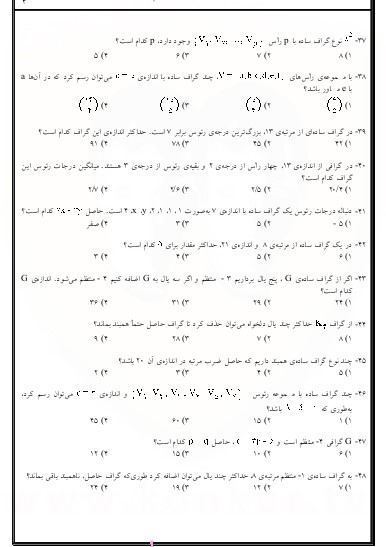 ۳۷- نوع گراف ساده با p رأس وجود دارد، p کدام است؟
۱) ۸ ۲) ۷ ۳) ۶ ۴) ۵
۳۸- با مجموعه‌ی رأس‌های چند گراف ساده با اندازه‌ی می‌توان رسم کرد که در آن‌ها a
با e مجاور باشد؟
۱) ۲) ۳) ۴)
۳۹- در گراف ساده‌ای از مرتبه‌ی ۱۳، بزرگ‌ترین درجه‌ی رئوس برابر ۷ است. حداکثر اندازه‌ی این گراف کدام است؟
۱) ۴۲ ۲) ۴۵ ۳) ۷۸ ۴) ۹۱
۴۰- در گرافی از اندازه‌ی ۱۳، چهار رأس از درجه‌ی ۲ و بقیه‌ی رئوس از درجه‌ی ۳ هستند. میانگین درجات رئوس این
گراف کدام است؟
۱) ۲/۴ ۲) ۲/۵ ۳) ۲/۶ ۴) ۲/۷
۴۱- دنباله درجات رئوس یک گراف ساده با اندازه‌ی ۷ به‌صورت ۱، ۱، ۱، ۲، x، y، ۴ است. حاصل کدام است؟
۱) ۵ ۲) ۵ ۳) ۳ ۴) صفر
۴۲- در یک گراف ساده از مرتبه‌ی ۸ و اندازه‌ی ۲۱، حداکثر مقدار برای کدام است؟
۱) ۶ ۲) ۵ ۳) ۴ ۴) ۳
۴۳- اگر از گراف ساده‌ی G، پنج یال برداریم ۳- منتظم و اگر سه یال به G اضافه کنیم ۴- منتظم می‌شود. اندازه‌ی G
کدام است؟
۱) ۲۴ ۲) ۲۹ ۳) ۳۱ ۴) ۳۶
۴۴- از گراف حداکثر چند یال دلخواه می‌توان حذف کرد تا گراف حاصل حتماً همبند بماند؟
۱) ۸ ۲) ۷ ۳) ۲۸ ۴) ۹
۴۵- چند نوع گراف ساده‌ی همبند داریم که حاصل ضرب مرتبه در اندازه‌ی آن ۲۰ باشد؟
۱) ۵ ۲) ۴ ۳) ۳ ۴) ۲
۴۶- چند گراف ساده با مجموعه رئوس و اندازه‌ی می‌توان رسم کرد،
به‌طوری که باشد؟
۱) ۱ ۲) ۱۵ ۳) ۶۰ ۴) ۴۵
۴۷- G گرافی ۴- منتظم است و ، حاصل کدام است؟
۱) ۶ ۲) ۱۰ ۳) ۱۵ ۴) ۱۲
۴۸- به گراف ساده‌ی ۱- منتظم مرتبه‌ی ۸، حداکثر چند یال می‌توان اضافه کرد طوری‌که گراف حاصل، ناهمبند باقی بماند؟
۱) ۷ ۲) ۱۲ ۳) ۱۹ ۴) ۲۴